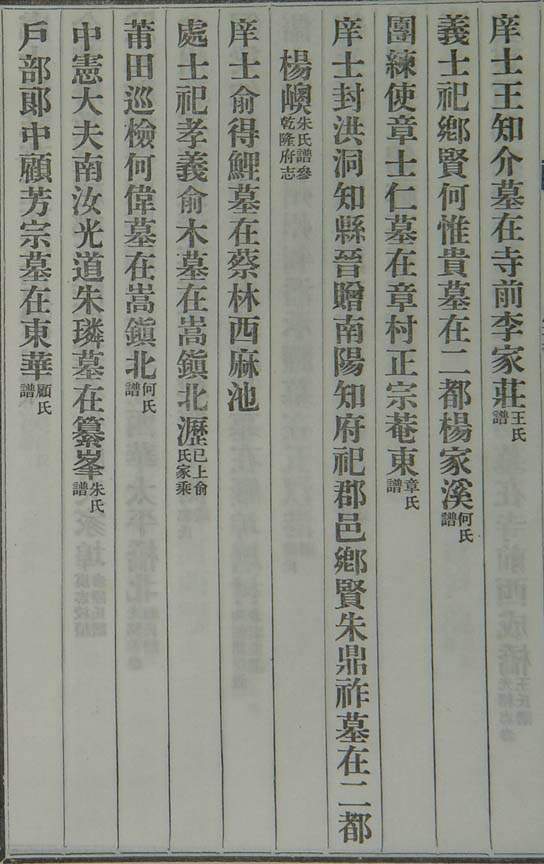 庠士王知介墓在寺前李家莊王氏譜
義士祀鄉賢何惟貴墓在二都楊家溪何氏譜
團練使章士仁墓在章村正宗菴東章氏譜
庠士封洪洞知縣晉贈南陽知府祀郡邑鄉賢朱鼎祚墓在二都
楊㠗朱氏譜參乾隆府志
庠士俞得鯉墓在蔡林西麻池
處士祀孝義俞木墓在嵩鎮北瀝已上俞氏家乘
莆田巡檢何偉墓在嵩鎮北何氏譜
中憲大夫南汝光道朱璘墓在纂峯朱氏譜
戶部郎中顧芳宗墓在東華顧氏譜